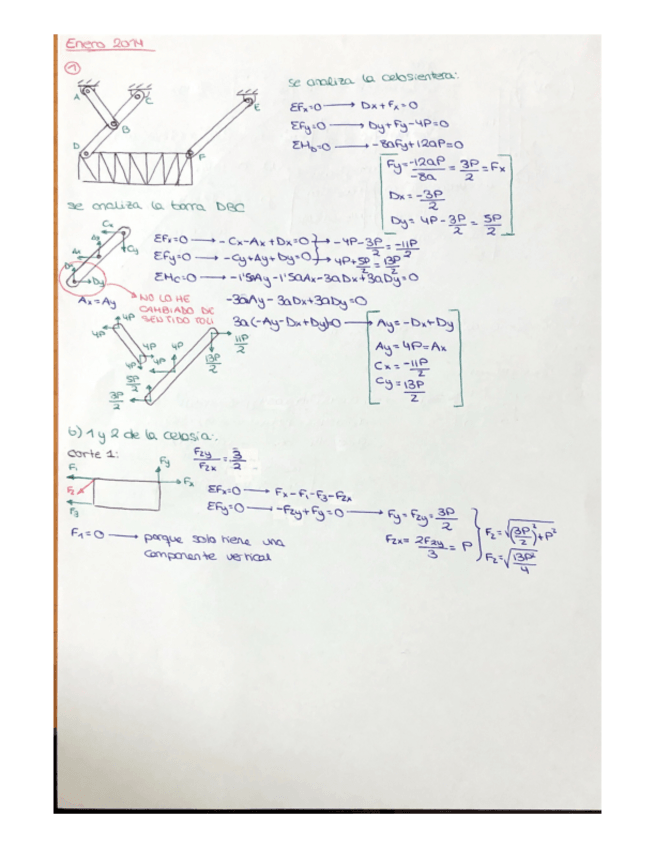 Enero 2014
1
se analiza la celosientera:
A
C
E
B
D
F
ΣFx=0 → Dx+Fx=0
ΣFy=0 → Dy+Fy-4P=0
ΣMD=0 → -8aFy+12aP=0
Fy=-12aP/-8a = 3P/2 = Fx
Dx = -3P/2
Dy = 4P - 3P/2 = 5P/2
se analiza la barra DBC
Cx
Cy
Ay
Ax
Dx
Dy
ΣFx=0 → -Cx-Ax+Dx=0 } → -4P-3P/2=-11P/2
ΣFy=0 → -Cy+Ay+Dy=0 } → 4P+5P/2=13P/2
ΣMc=0 → -1'5aAy-1'5aAx-3aDx+3aDy=0
Ax=Ay
NO LO HE
CAMBIADO DE
SENTIDO TOLI
-3aAy-3aDx+3aDy=0
3a(-Ay-Dx+Dy)=0 → Ay=-Dx+Dy
Ay=4P=Ax
Cx=-11P/2
Cy=13P/2
4P
4P
4P
4P
4P
4P
11P/2
13P/2
5P/2
3P/2
b) 1 y 2 de la celosia:
corte 1:
F2y/F2x = 3/2
F1
F2
F3
Fy
Fx
ΣFx=0 → Fx-F1-F3-F2x
ΣFy=0 → -F2y+Fy=0 → Fy=F2y=3P/2
F2x= 2F2y/3 = P
F2=√(3P/2)²+P²
F2=√13P²/4
F1=0 → porque solo tiene una
componente vertical